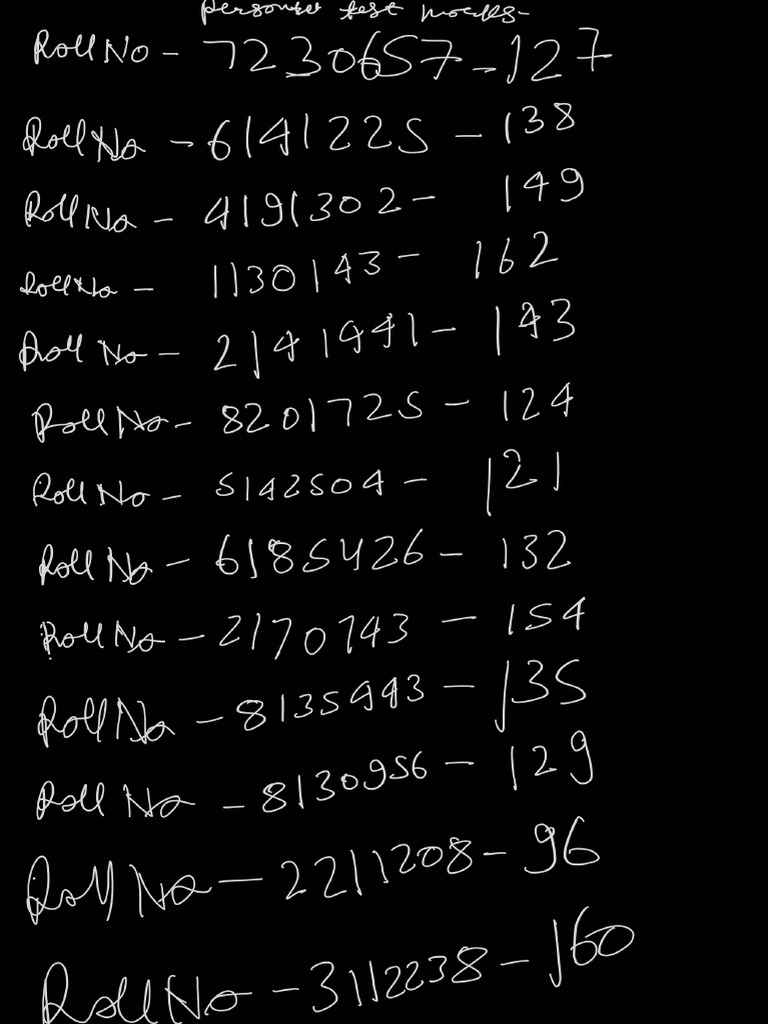 test marks-
Roll No - 7230657 - 127
Roll No - 6141225 - 138
Roll No - 4191302 - 149
Roll No - 1130143 - 162
Roll No - 2141941 - 143
Roll No - 8201725 - 124
Roll No - 5142504 - 121
Roll No - 6185426 - 132
Roll No - 2170743 - 154
Roll No - 8135443 - 135
Roll No - 8130956 - 129
Roll No - 2211208 - 96
Roll No - 3112238 - 160